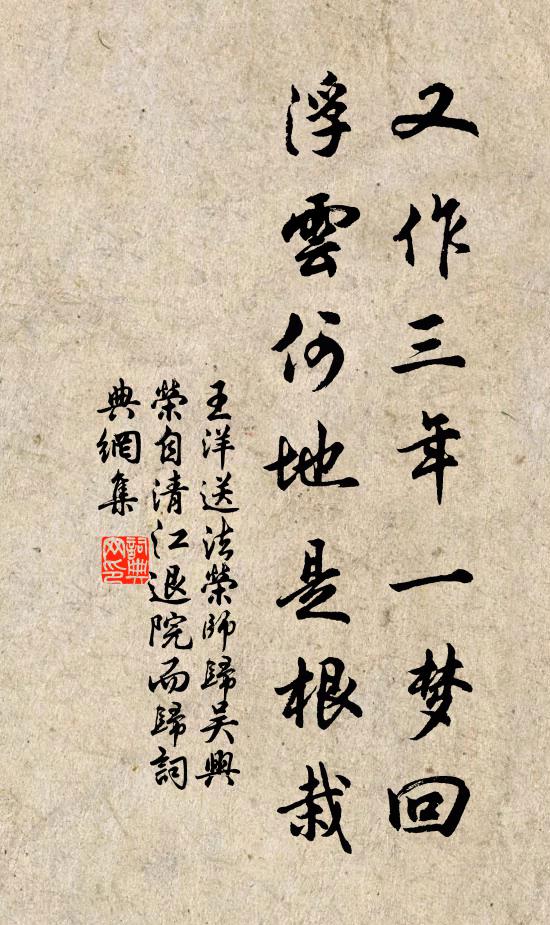 又作三年一梦回
浮雲何地是根栽
王洋送法榮師歸吴興
榮自清江退院而歸詞
典網集
詞典
网印